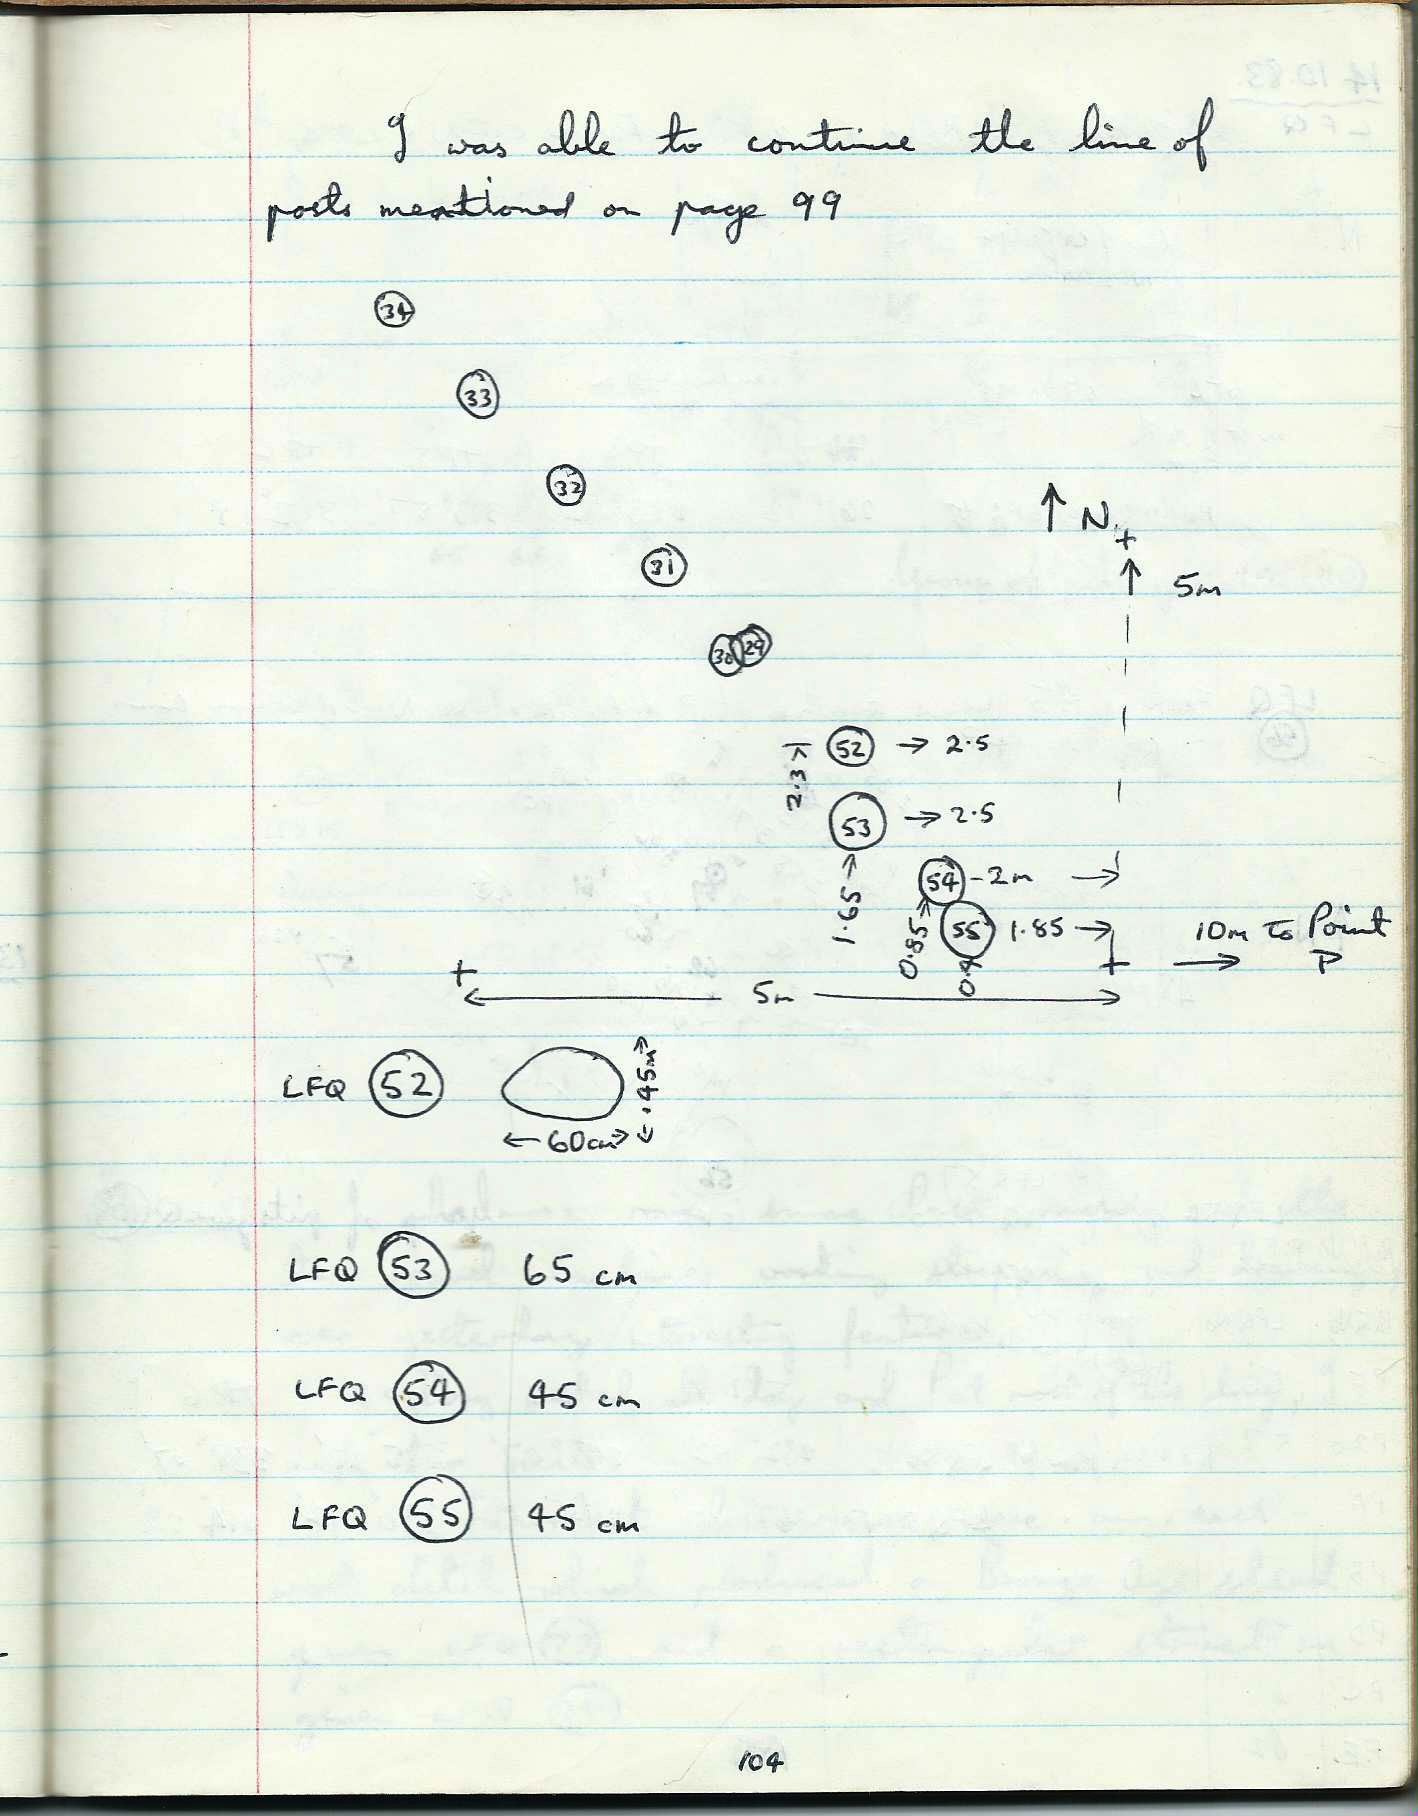 I was able to continue the line of
posts mentioned on page 99
34
33
32
31
30 29
↑ N
5m
52 → 2.5
2.3
53 → 2.5
1.65
54 - 2m →
0.85
55 1.85 →
10m to Point
P
5m
LFQ 52
.45m
60cm
LFQ 53 65 cm
LFQ 54 45 cm
LFQ 55 45 cm
104